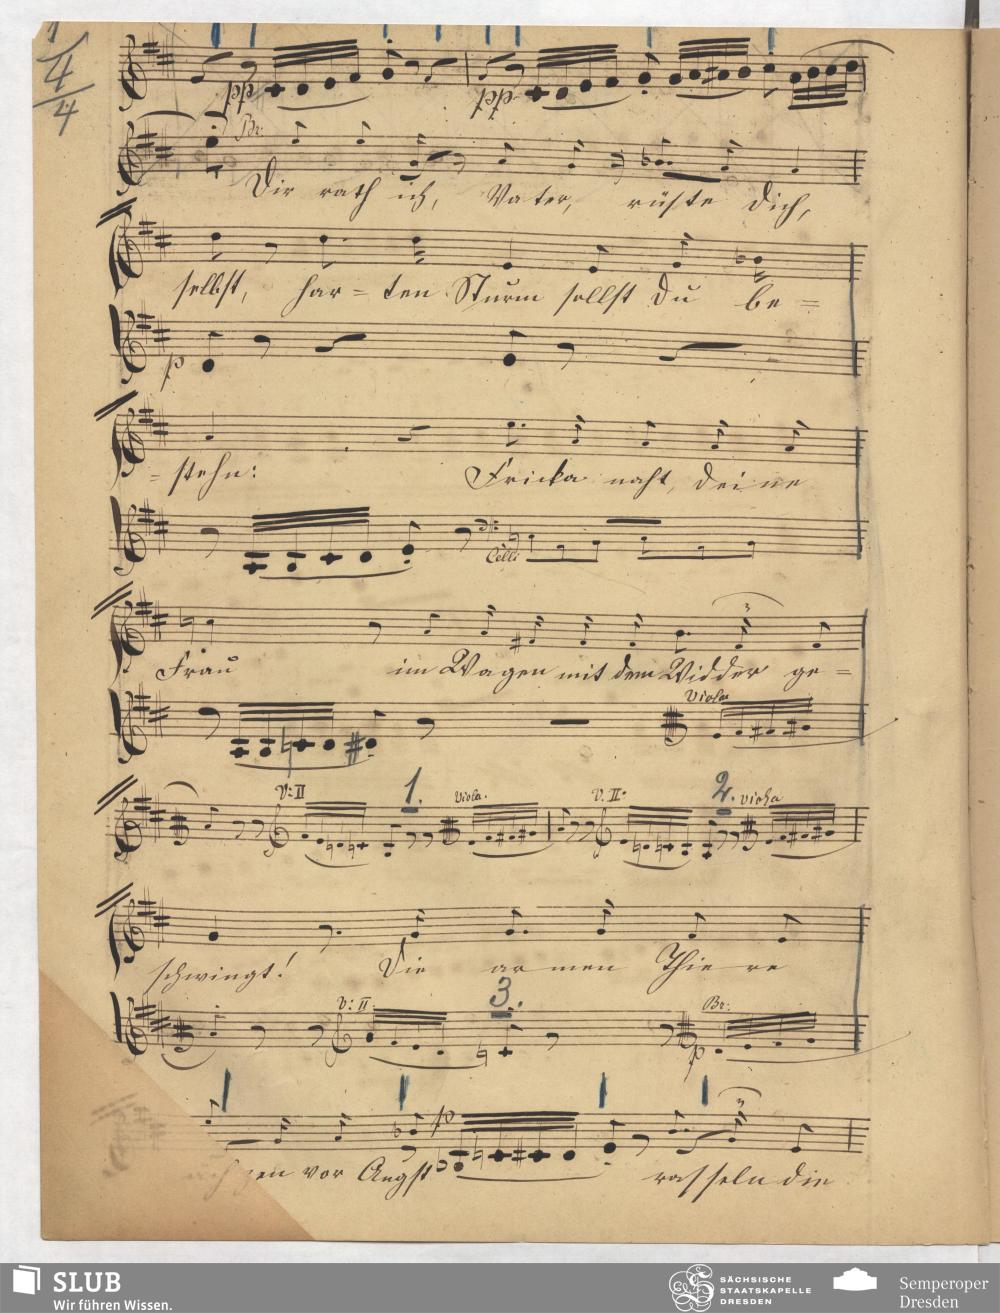 4/4
Br:
Dir rath ich, Vater, rüste dich,
selbst, har= ten Sturm sollst du be=
p
=stehn: Fricka naht, deine
Celli
Frau im Wagen mit dem Widder ge=
3
Viola
V: II 1. Viola. V. II. 2. viola
schwingt! Die ar men Thie re
V: II 3. Br:
p
p 3
zen vor Angst rasseln die
SLUB
Wir führen Wissen.
SÄCHSISCHE
STAATSKAPELLE
DRESDEN
Semperoper
Dresden